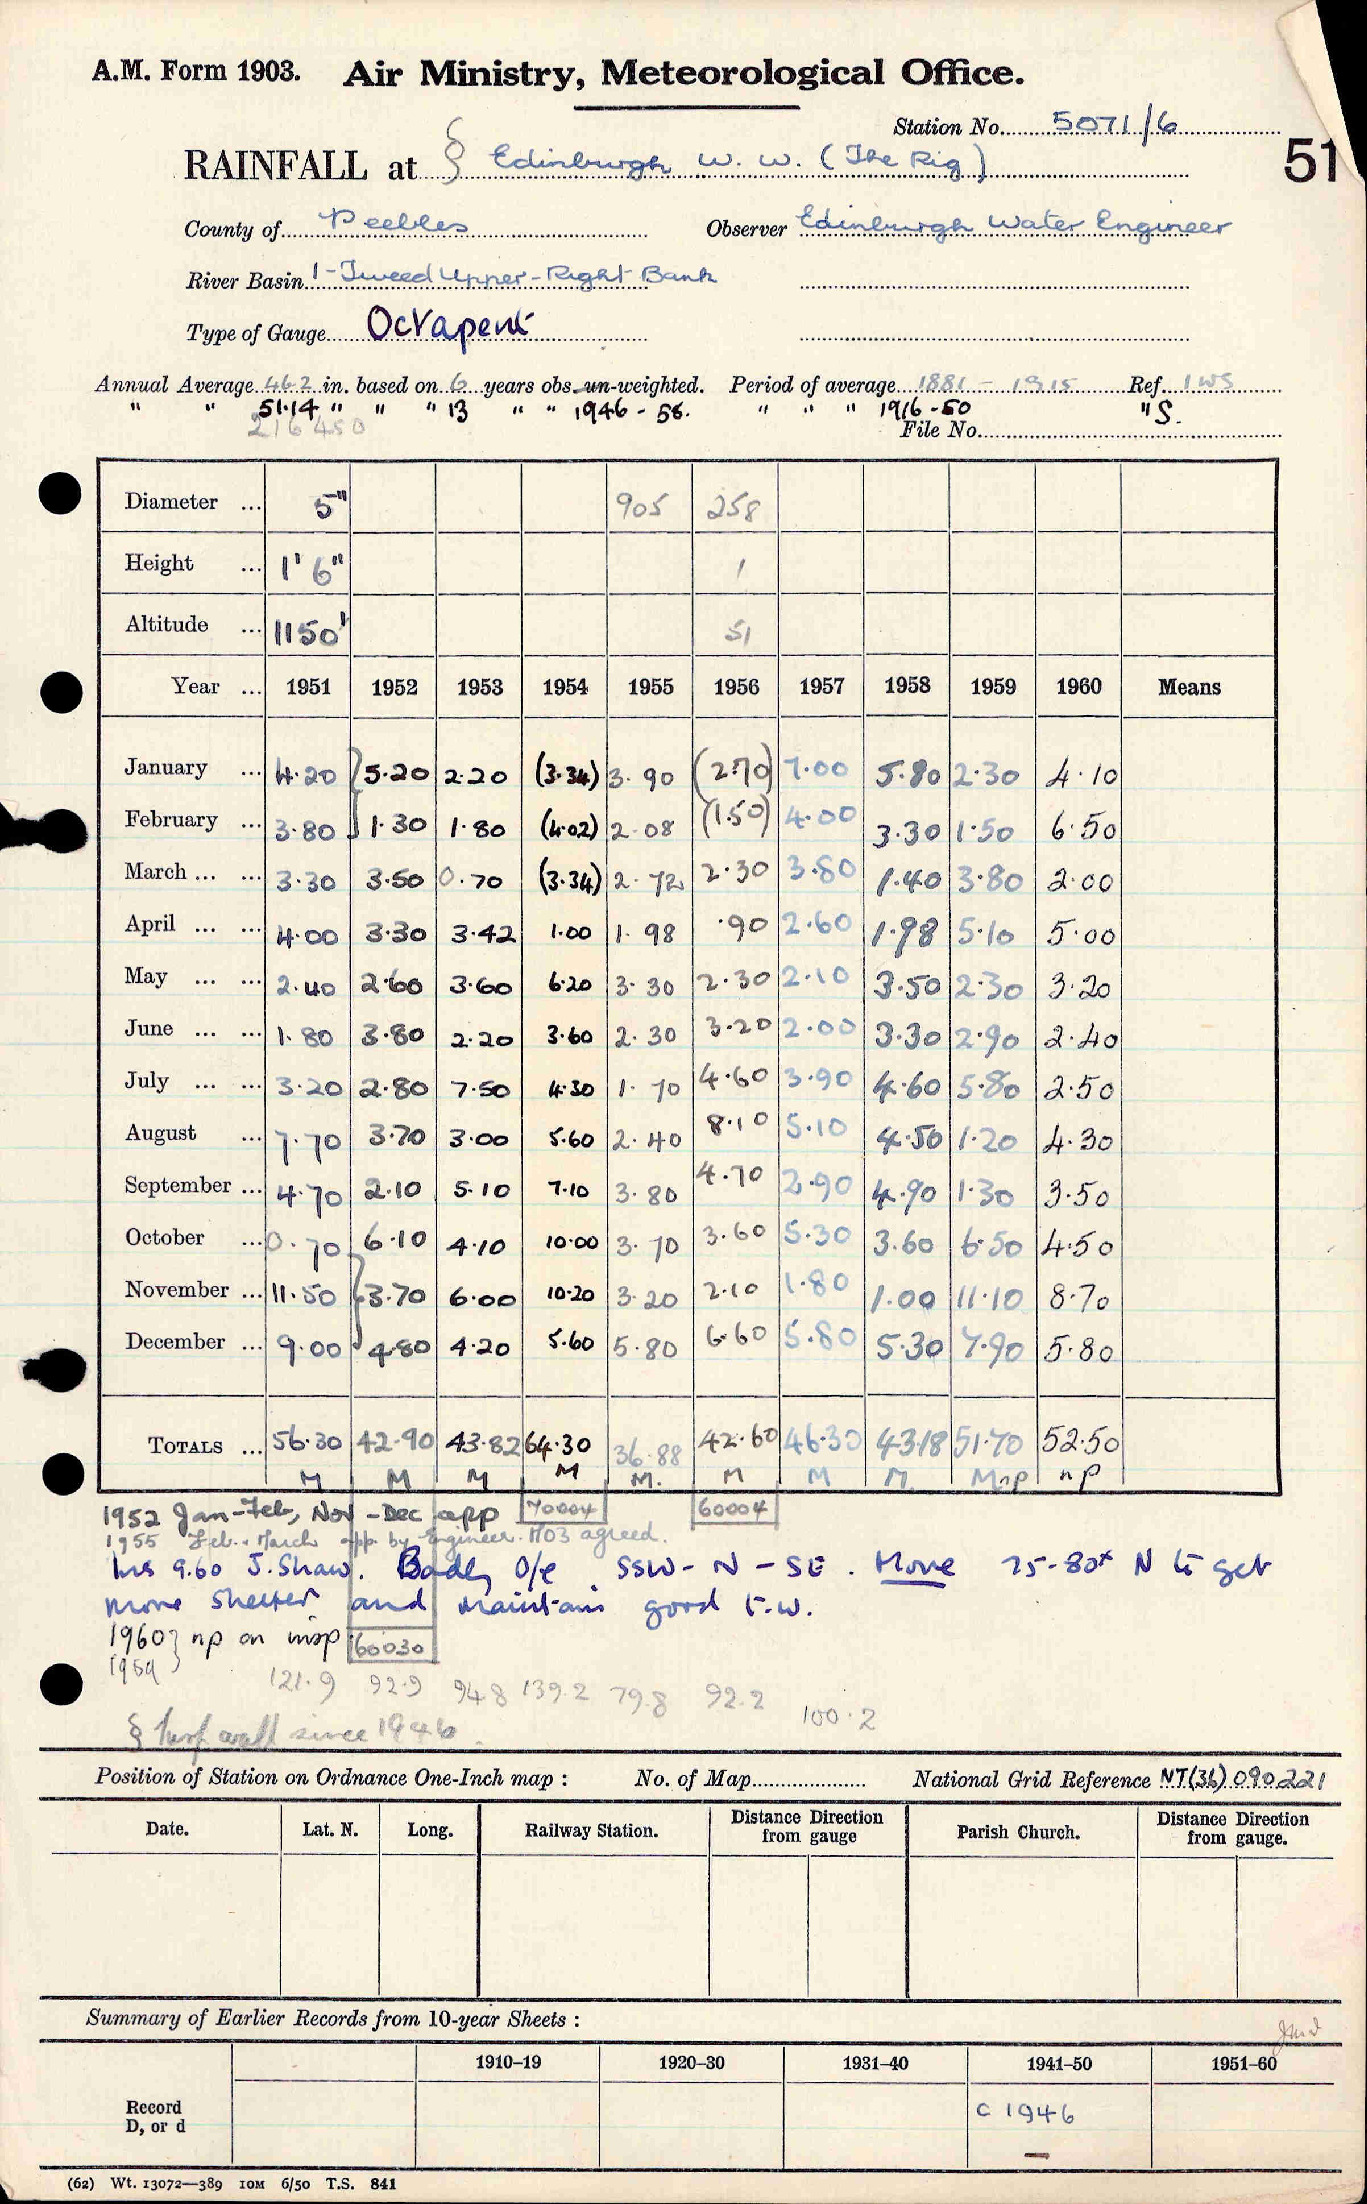 A.M. Form 1903. Air Ministry, Meteorological Office.
Station No. 5071/6
51
RAINFALL at § Edinburgh W. W. (The Rig)
County of Peebles Observer Edinburgh Water Engineer
River Basin 1 - Tweed Upper - Right Bank
Type of Gauge Octapent
Annual Average 46.2 in. based on 6 years obs. un-weighted. Period of average 1881 - 1915 Ref. IWS
" " 51.14 " " " 13 " " 1946 - 58. " " " 1916 - 50 " S.
216450
File No.
Diameter ... 5" 905 258
Height ... 1' 6" 1
Altitude ... 1150' 51
Year ... 1951 1952 1953 1954 1955 1956 1957 1958 1959 1960 Means
January ... 4.20 5.20 2.20 (3.34) 3.90 (2.70) 7.00 5.80 2.30 4.10
February ... 3.80 1.30 1.80 (4.02) 2.08 (1.50) 4.00 3.30 1.50 6.50
March ... ... 3.30 3.50 0.70 (3.34) 2.72 2.30 3.80 1.40 3.80 2.00
April ... ... 4.00 3.30 3.42 1.00 1.98 .90 2.60 1.98 5.10 5.00
May ... ... 2.40 2.60 3.60 6.20 3.30 2.30 2.10 3.50 2.30 3.20
June ... ... 1.80 3.80 2.20 3.60 2.30 3.20 2.00 3.30 2.90 2.40
July ... ... 3.20 2.80 7.50 4.30 1.70 4.60 3.90 4.60 5.80 2.50
August ... 7.70 3.70 3.00 5.60 2.40 8.10 5.10 4.50 1.20 4.30
September ... 4.70 2.10 5.10 7.10 3.80 4.70 2.90 4.90 1.30 3.50
October ... 0.70 6.10 4.10 10.00 3.70 3.60 5.30 3.60 6.50 4.50
November ... 11.50 3.70 6.00 10.20 3.20 2.10 1.80 1.00 11.10 8.70
December ... 9.00 4.80 4.20 5.60 5.80 6.60 5.80 5.30 7.90 5.80
TOTALS ... 56.30 42.90 43.82 64.30 36.88 42.60 46.30 43.18 51.70 52.50
M M M M M. M M M. M np np
1952 Jan-Feb, Nov - Dec app 70004 60004
1955 Feb. March app. by Engineer. MO3 agreed.
Ins 9.60 J. Shaw. Badly O/e SSW - N - SE. Move 75-80x N to get
more shelter and maintain good t.w.
1960 } np on insp 60030
1959 }
121.9 92.9 94.8 139.2 79.8 92.2 100.2
§ Turf wall since 1946.
Position of Station on Ordnance One-Inch map : No. of Map National Grid Reference NT(36) 090221
Date. Lat. N. Long. Railway Station. Distance Direction from gauge Parish Church. Distance Direction from gauge.
Summary of Earlier Records from 10-year Sheets :
1910-19 1920-30 1931-40 1941-50 1951-60
Record
D, or d
C 1946
—
(62) Wt. 13072—389 10M 6/50 T.S. 841